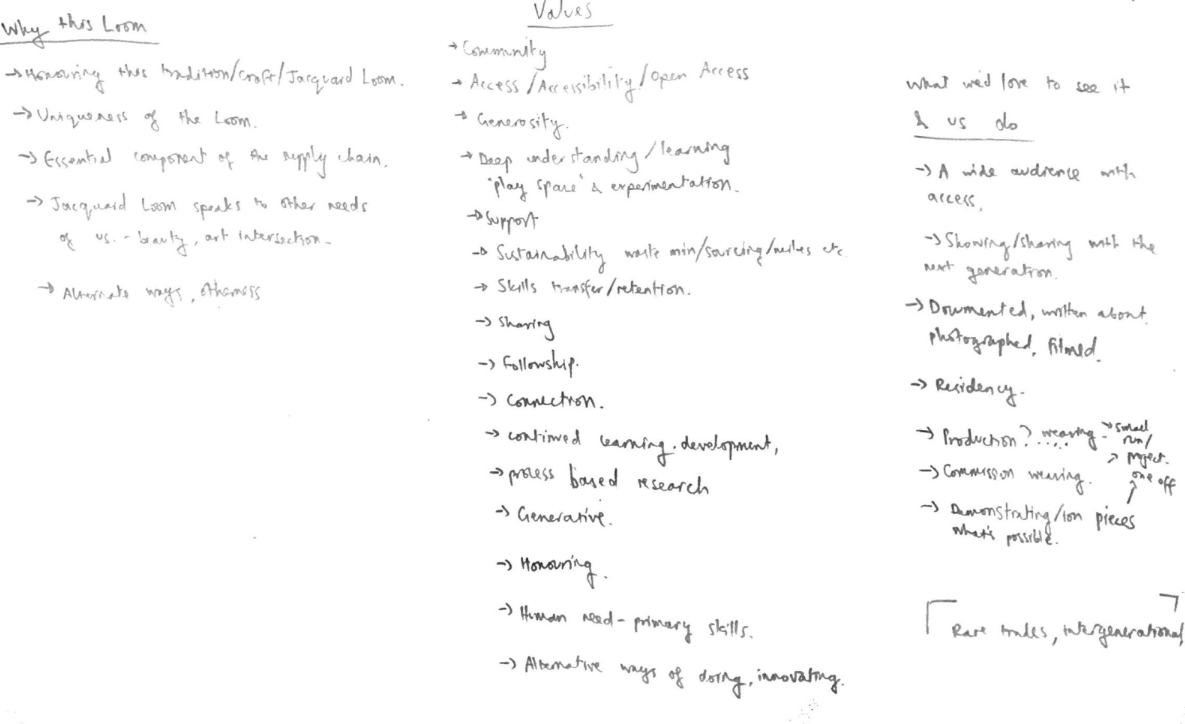 Why this Loom
→ Honouring this tradition/craft/Jacquard Loom.
→ Uniqueness of the Loom.
→ Essential component of the supply chain.
→ Jacquard Loom speaks to other needs
of us. - beauty, art intersection -
→ Alternate ways, otherness
Values
→ Community
→ Access/Accessibility/Open Access
→ Generosity.
→ Deep understanding/learning
'play space' & experimentation.
→ Support
→ Sustainability waste min/sourcing/miles etc.
→ Skills transfer/retention.
→ Sharing
→ Followship.
→ Connection.
→ continued learning. development,
→ process based research
→ Generative.
→ Honouring.
→ Human need - primary skills.
→ Alternative ways of doing, innovating.
What we'd love to see it
& us do
→ A wide audience with
access.
→ Showing/sharing with the
next generation.
→ Documented, written about.
photographed, filmed.
→ Residency.
→ Production? weaving → small
run/
→ project.
→ Commission weaving. one off
→ Demonstrating/ion pieces
what's possible.
Rare trades, intergenerational,